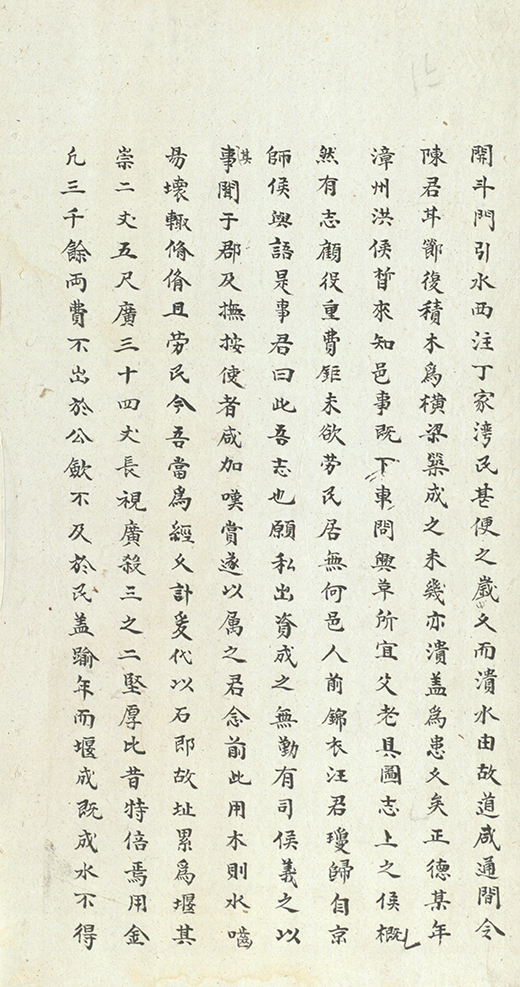 開斗門引水西注丁家湾民甚便之歲久而潰水由故道咸通間令
陳君甘節復積木爲橫梁築成之未幾亦潰盖爲患久矣正德某年
漳州洪侯晳來知邑事既下車問興革所宜父老具圖志上之侯概
然有志顧役重費鉅未欲勞民居無何邑人前錦衣汪君瓊歸自京
師侯與語是事君曰此吾志也願私出資成之無勤有司侯義之以
其事聞于郡及撫按使者咸加嘆賞遂以属之君念前此用木則水嚙
易壞輒脩脩且劳民今吾當爲經久計爰代以石即故址累爲堰其
崇二丈五尺廣三十四丈長視廣殺三之二堅厚比昔特倍焉用金
凡三千餘両費不出於公斂不及於民盖踰年而堰成既成水不得